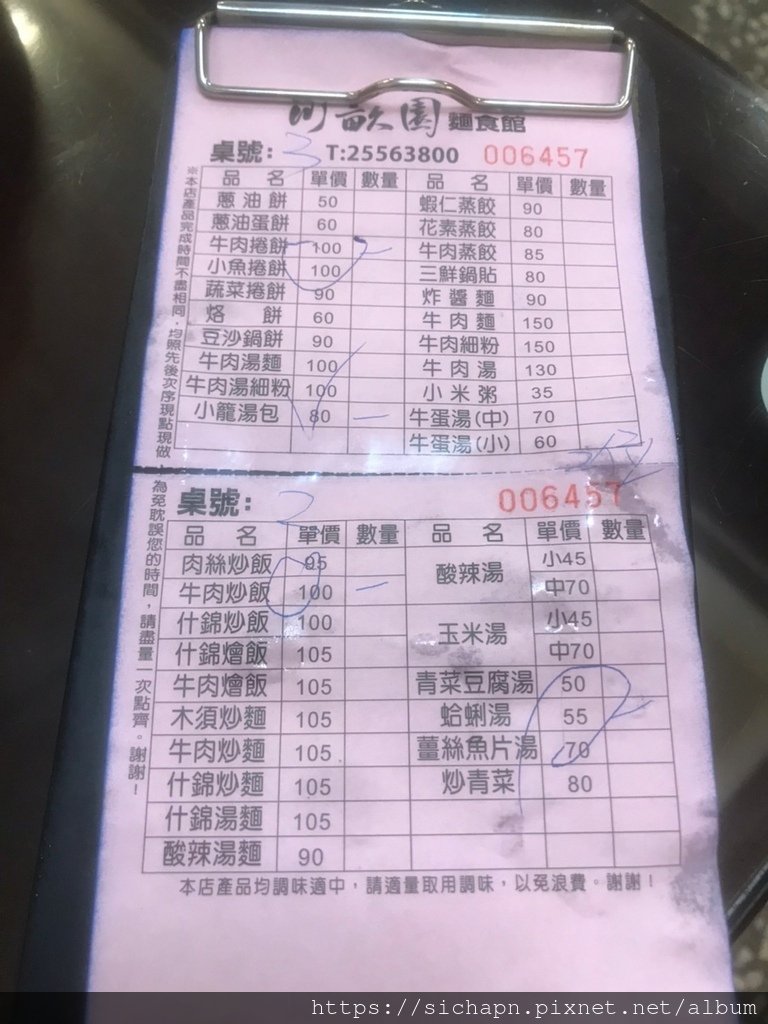 畝園 麵食館
桌號: 3 T:25563800 006457
品 名 單價 數量 品 名 單價 數量
蔥油餅 50 蝦仁蒸餃 90
蔥油蛋餅 60 花素蒸餃 80
牛肉捲餅 100 一 牛肉蒸餃 85
小魚捲餅 100 三鮮鍋貼 80
蔬菜捲餅 90 炸醬麵 90
烙 餅 60 牛肉麵 150
豆沙鍋餅 90 牛肉細粉 150
牛肉湯麵 100 牛肉湯 130
牛肉湯細粉 100 小米粥 35
小籠湯包 80 一 牛蛋湯(中) 70
牛蛋湯(小) 60
※本店產品完成時間不盡相同，均照先後次序現點現做
桌號: 2 006457
品 名 單價 數量 品 名 單價 數量
肉絲炒飯 95 酸辣湯 小45
牛肉炒飯 100 一 中70
什錦炒飯 100 玉米湯 小45
什錦燴飯 105 中70
牛肉燴飯 105 青菜豆腐湯 50
木須炒麵 105 蛤蜊湯 55
牛肉炒麵 105 薑絲魚片湯 70
什錦炒麵 105 炒青菜 80
什錦湯麵 105
酸辣湯麵 90
為免耽誤您的時間，請盡量一次點齊。謝謝！
本店產品均調味適中，請適量取用調味，以免浪費。謝謝！
https://sichapn.pixnet.net/album